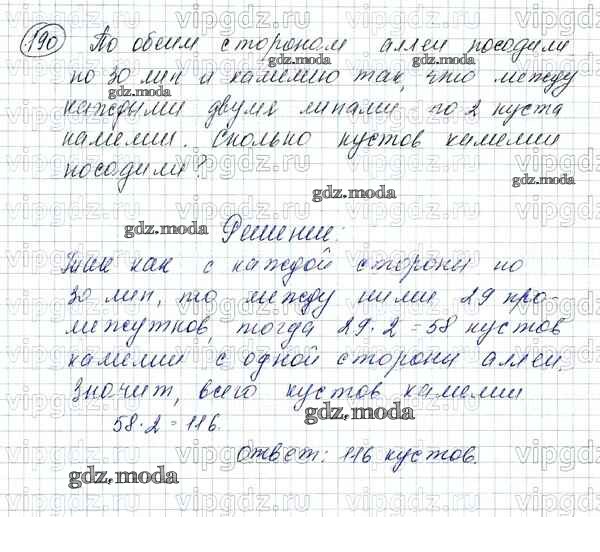 190 По обеим сторонам аллеи посадили
по 30 лип и камелию так, что между
каждыми двумя липами по 2 куста
камелии. Сколько кустов камелии
посадили?
Решение:
Так как с каждой стороны по
30 лип, то между ними 29 про-
межутков, тогда 29·2=58 кустов
камелии с одной стороны аллеи.
Значит, всего кустов камелии
58·2=116.
Ответ: 116 кустов.
gdz.moda
vipgdz.ru